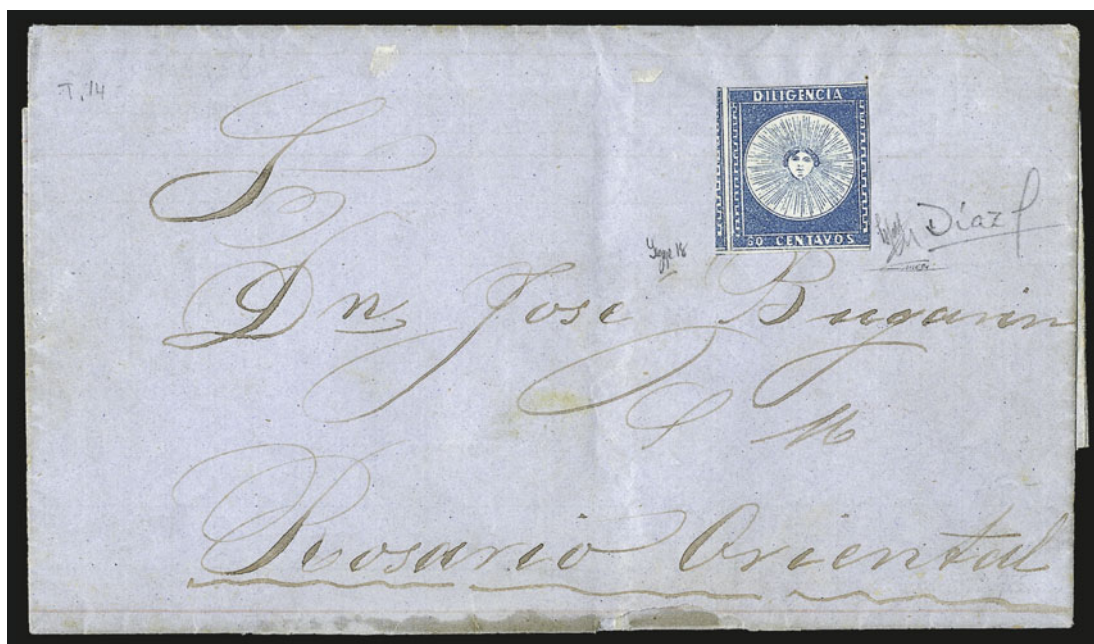 T. 14
DILIGENCIA
60 CENTAVOS
Díaz
S
Dn Jose Bugarin
S M
Rosario Oriental